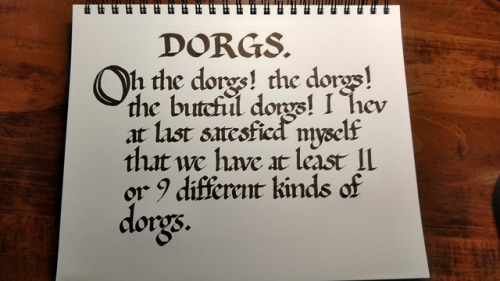 DORGS.
Oh the dorgs! the dorgs!
the buteful dorgs! I hev
at last satesfied myself
that we have at least 11
or 9 different kinds of
dorgs.